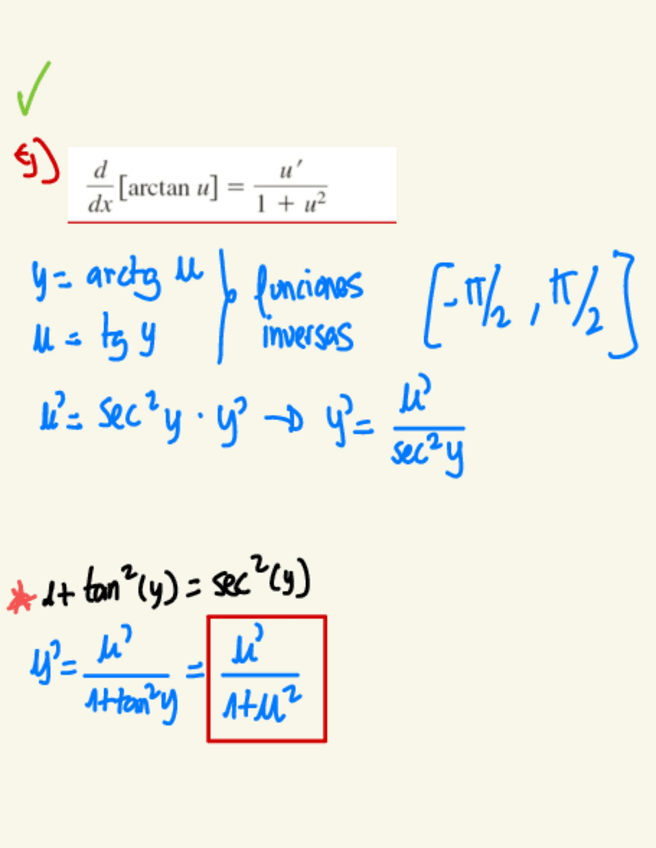 g)
d/dx [arctan u] = u'/(1 + u²)
y = arctg u } funciones inversas [-π/2, π/2]
u = tg y
u' = sec²y · y' → y' = u'/sec²y
* 1 + tan²(y) = sec²(y)
y' = u'/(1+tan²y) = u'/(1+u²)